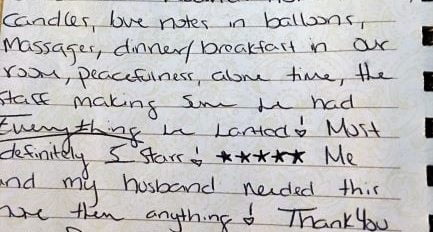 candles, love notes in balloons,
Massages, dinner/breakfast in our
room, peacefulness, alone time, the
staff making sure we had
Everything we wanted! Most
definitely 5 stars! ★★★★★ Me
and my husband needed this
more then anything! Thank You